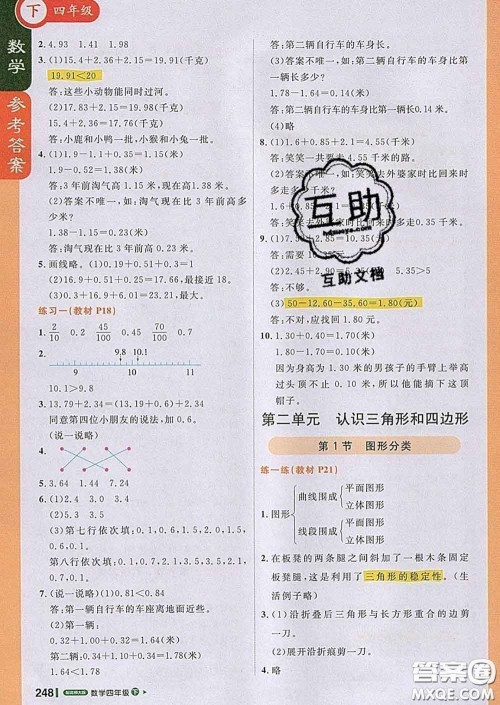 下 四年级
数学
参考答案
2. 4.93 1.41 1.98
3. (1)15.4+2.36+2.15=19.91(千克)
19.91<20
答:这些小动物能同时过河。
(2)17.83+2.15=19.98(千克)
15.4+2.36=17.76(千克)
答:小鹿和小鸭一批,小猴和小兔一批。
4. (1)1.9-0.11+1.01=1.35(米)
答:3年前淘气高1.35米。
(2)答案不唯一,如淘气现在比3年前高多少?
1.58-1.35=0.23(米)
答:淘气现在比3年前高0.23米。
5. 画线略。(1)19.02-0.72=18.3,
(2)15.6+2.57=18.17,最接近18。
(3)16.9+6.31=23.21,最大。
练习一(教材 P18)
1. 2/10 0.2 45/100 0.45 70/100 0.7
2.
9 9.8 10 10.1 11
10.1>9.8
3. 1.24+0.76=2
同意第四位小朋友的说法,加0.6。
(说一说略)
4.
5. 3.13 1.44 7.31 7.64
6. (1)第七行依次填:0.1,0.6,1.5,2,1.5,0.6,0.1
第八行依次填:0.1,0.7,2.1,3.5,3.5,2.1,0.7,0.1
(2)(说一说略)
7. (1)0.55<0.58
答:第一辆自行车的车座离地面近些。
(2)第一辆:
0.32+1.00+0.32=1.64(米)
第二辆:0.39+1.00+0.39=1.78(米)
1.64<1.78
答:第二辆自行车的车身长。
(3)答案不唯一,如:第二辆车身比第一辆长多少?
1.78-1.64=0.14(米)
答:第二辆自行车的车身比第一辆长0.14米。
(4)略
8. (1)1.65+2.9=4.55(千米)
答:笑笑一共要走4.55千米的路。
(2)答案不唯一,如:笑笑去外婆家时比回来时多走多少千米?
答:笑笑去外婆家时比回来时多走0.35千米。
5.35>5
答:不够。
(3)50-12.60-35.60=1.80(元)
答:不对,应找回1.80元。
1.30<1.74
因为身高为1.30米的男孩子的手臂上举高过头顶的长度超过10厘米,所以他能摘下这顶帽子。
互助
hdzuoye.com
互助文档
第二单元 认识三角形和四边形
第1节 图形分类
练一练(教材 P21)
1. 图形
曲线围成
平面图形
立体图形
线段围成
平面图形
立体图形
2. 在板凳的两条腿之间斜加了一根木条固定板凳腿,这是利用了三角形的稳定性。(生活例子略)
3. (1)沿折叠后三角形与长方形重合的边剪一刀。
4. 略
248 数学四年级 下
答案圈
MXQE.COM